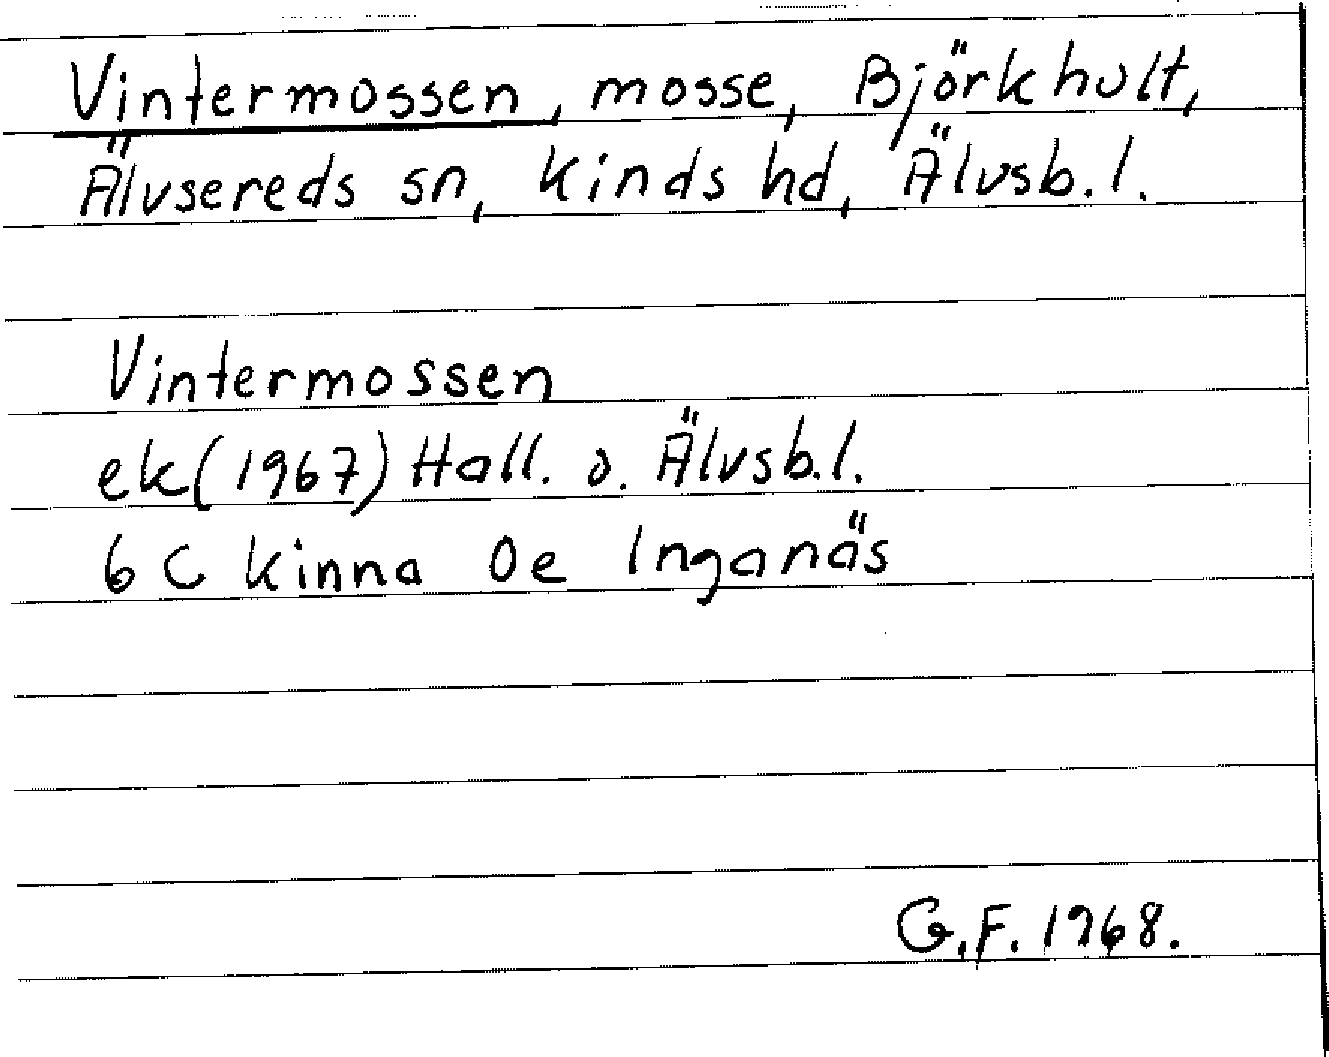 Vintermossen, mosse, Björkhult,
Älvsereds sn, Kinds hd, Älvsb.l.
Vintermossen
ek(1967) Hall. o. Älvsb.l.
6 C Kinna 0e Inganäs
G.F. 1968.